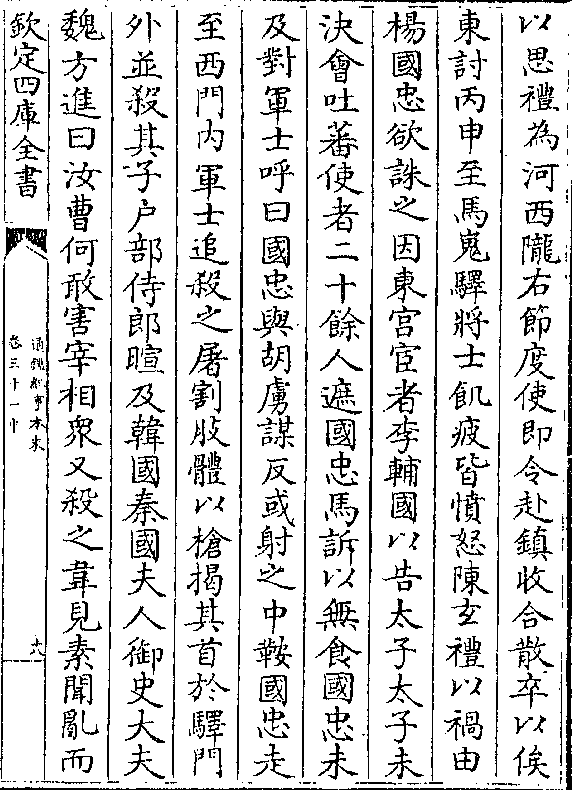 以思禮為河西隴右節度使即令赴鎮收合散卒以俟
東討丙申至馬嵬驛將士飢疲皆憤怒陳玄禮以禍由
楊國忠欲誅之因東宮宦者李輔國以告太子太子未
決會吐蕃使者二十餘人遮國忠馬訴以無食國忠未
及對軍士呼曰國忠與胡虜謀反或射之中鞍國忠走
至西門內軍士追殺之屠割肢體以槍揭其首於驛門
外並殺其子户部侍郎暄及韓國秦國夫人御史大夫
魏方進曰汝曹何敢害宰相衆又殺之韋見素聞亂而
欽定四庫全書
通鑑紀事本末
卷三十一中
十八